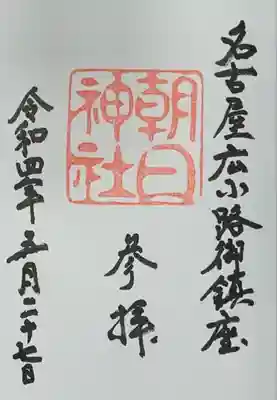 名古屋広小路御鎮座
朝日神社
参拝
令和四年五月二十七日